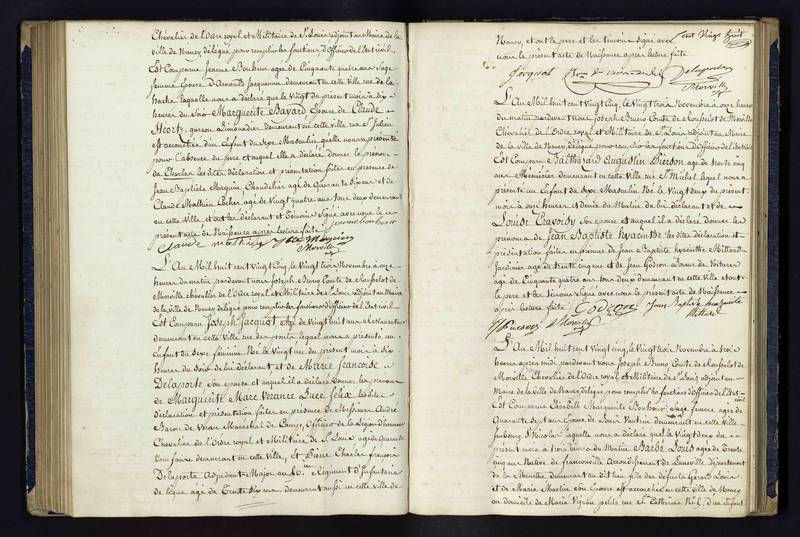 Chevalier de l'Ordre royal et Militaire de St Louis adjoint au Maire de la
ville de Nancy délégué pour remplir les fonctions d'Officier de l'état civil
Est Comparue Jeanne Bonheur agée de Cinquante quatre ans Sage
femme Epouse d'Arnould Jacquemin demeurant en cette ville rue de la
hache laquelle nous a déclaré que le Vingt du présent mois à dix
heures du Soir Marguerite Bavard Epouse de Claude
garçon Limonadier demeurant en cette ville rue St Julien
est accouchée d'un Enfant du Sexe Masculin qu'elle nous a présenté
pour l'absence du père et auquel elle a déclaré donner le prénom
de Charles les dites déclaration et présentation faites en présence de
Jean Baptiste Marquis Chandelier agé de Quarante Six ans et de
Claude Mathieu Cocher agé de Vingt quatre ans tous deux demeurant
en cette Ville et ont les déclarant et Témoins Signé avec nous le
présent acte de Naissance après lecture faite
Claude Mathieu
Morville
L'An Mil huit cent Vingt Cinq, le Vingt trois Novembre à onze
heures du matin pardevant nous Joseph Bruno Comte de
Morville chevalier de l'Ordre royal et Militaire de St Louis adjoint au Maire
de la Ville de Nancy délégué pour remplir les fonctions d'Officier de l'Etat civil
Est Comparu Joseph Jacquot Agé de Vingt huit ans
demeurant en cette Ville rue des ponts lequel nous a présenté un
Enfant du Sexe féminin Né le Vingt un du présent mois à dix
heures du Soir de lui déclarant et de Marie françoise
Delaporte Son épouse et auquel il a déclaré donner les prénoms
de Marguerite Marie les dites
déclaration et présentation faites en présence de Messieurs
Baron de Maréchal de Camp, Officier de la Légion d'honneur
Chevalier de l'Ordre royal et Militaire de St Louis agé de Quarante
ans demeurant en cette Ville, et Pierre Charles françois
Delaporte Adjudant Major au Régiment d'Infanterie
de ligne agé de Trente Six ans demeurant aussi en cette Ville de
cent Vingt huit
Nancy, et ont le père et les témoins Signé avec
nous le présent acte de Naissance après lecture faite
Jacquot
Delaporte
Morville
L'An Mil huit cent Vingt Cinq, le Vingt trois Novembre à onze heures
du matin pardevant nous Joseph Bruno Comte de Morville
Chevalier de l'Ordre royal et Militaire de St Louis adjoint au Maire
de la Ville de Nancy, délégué pour remplir les fonctions d'Officier de l'Etat civil
Est Comparu Balthazard Augustin Pierson agé de trente cinq
ans Menuisier demeurant en cette Ville rue St Michel lequel nous a
présenté un Enfant du Sexe Masculin Né le Vingt deux du présent
mois à onze heures et demie du Matin de lui déclarant et de
Louise Son épouse et auquel il a déclaré donner les
prénoms de Jean Baptiste hyacinthe les dites déclaration et
présentation faites en présence de Jean Baptiste hyacinthe Millard
Jardinier agé de trente cinq ans et de Jean Godron de Voitures
agé de Cinquante quatre ans tous deux demeurant en cette Ville et ont
le père et les témoins Signé avec nous le présent acte de Naissance
après lecture faite
Godron
Jean Baptiste hyacinthe
Millard
Pierson
Morville
L'An Mil huit cent Vingt Cinq, le Vingt trois Novembre à trois
heures après midi pardevant nous Joseph Bruno Comte de
Morville Chevalier de l'Ordre royal et Militaire de St Louis, adjoint au
Maire de la Ville de Nancy délégué pour remplir les fonctions d'Officier de l'Etat
civil
Est Comparue Elisabeth Marguerite Bonheur Sage femme agée de
Quarante Sept ans Epouse de Louis Vautrin demeurant en cette Ville
faubourg St Nicolas laquelle nous a déclaré que le Vingt deux du
présent mois à trois heures du Matin Barbe Louis agée de Trente
cinq ans Native de Arrondissement de Lunéville Département
de la Meurthe demeurant audit lieu fille des défunts Gérard Louis
et de Marie Martin son Epouse est accouchée en cette ville de Nancy
au domicile de Marie petite rue Ste Catherine d'un Enfant